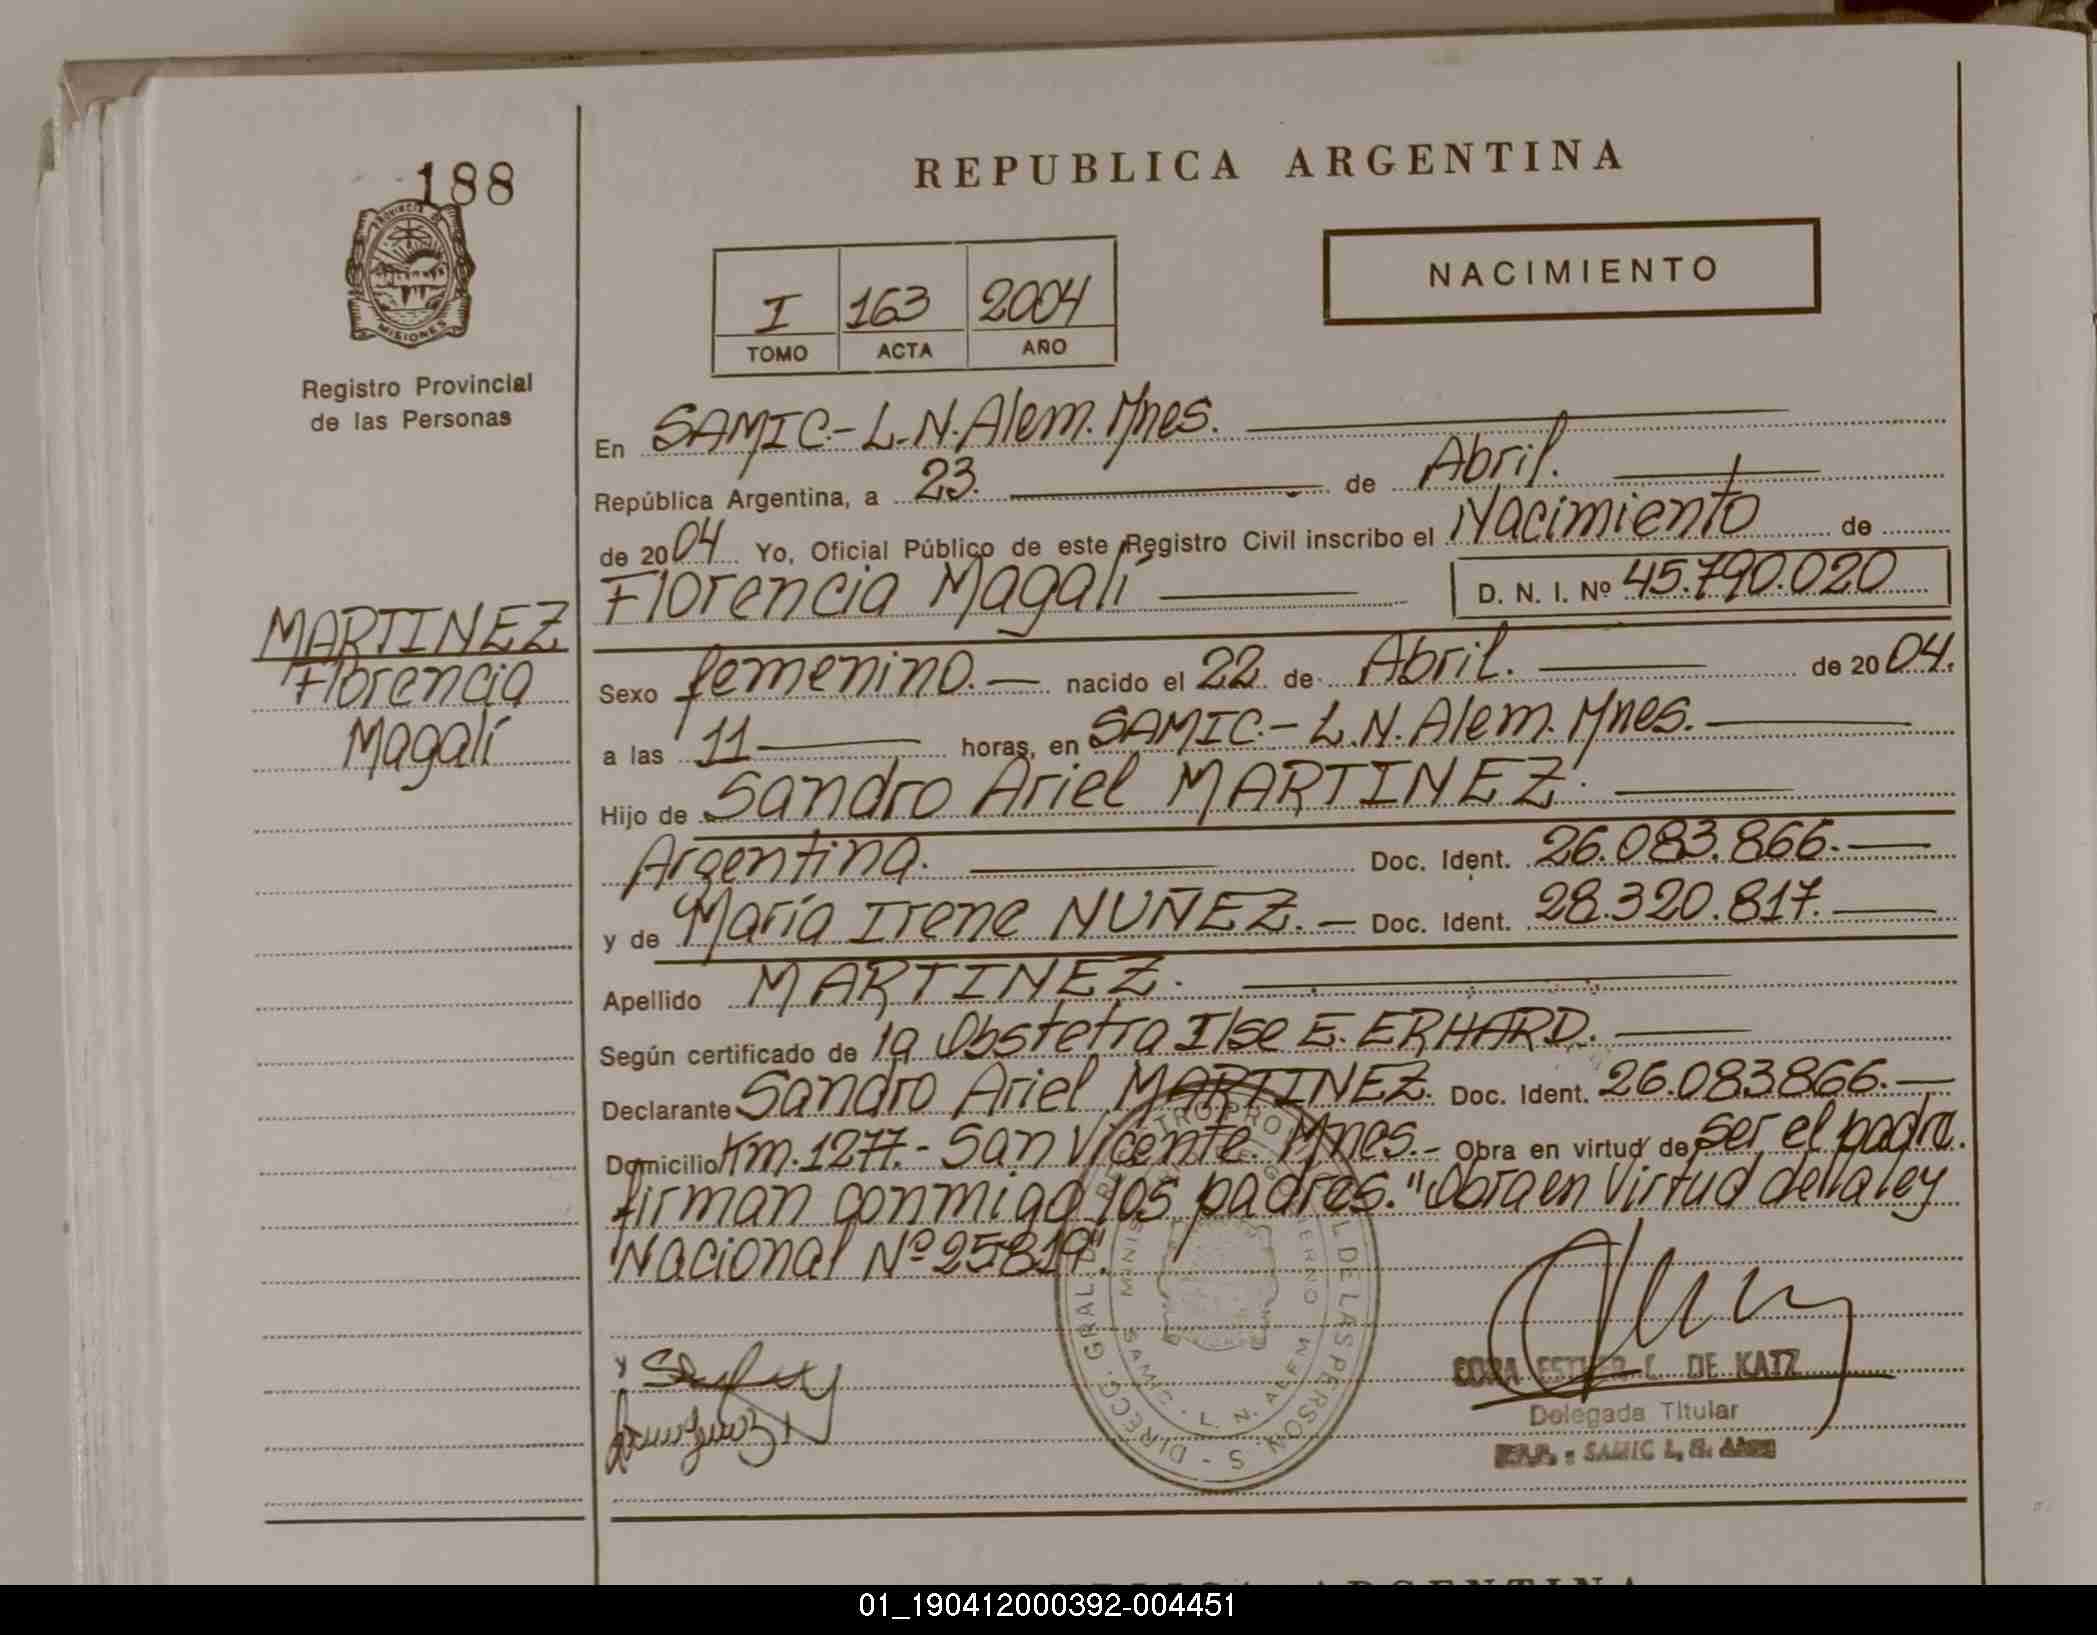 188
REPUBLICA ARGENTINA
PROVINCIA DE
MISIONES
Registro Provincial
de las Personas
I 163 2004
TOMO ACTA AÑO
NACIMIENTO
En SAMIC.- L.N. Alem. Mnes.
República Argentina, a 23. de Abril.
de 2004 Yo, Oficial Público de este Registro Civil inscribo el Nacimiento de
Florencia Magalí D. N. I. Nº 45.790.020
MARTINEZ
Florencia
Magalí
Sexo femenino.- nacido el 22 de Abril. de 2004.
a las 11 horas, en SAMIC.- L.N. Alem. Mnes.
Hijo de Sandro Ariel MARTINEZ.
Argentina. Doc. Ident. 26.083.866.-
y de María Irene NUÑEZ.- Doc. Ident. 28.320.817.-
Apellido MARTINEZ.
Según certificado de la Obstetra Ilse E. ERHARD.
Declarante Sandro Ariel MARTINEZ. Doc. Ident. 26.083.866.-
Domicilio Km. 1277.- San Vicente. Mnes.- Obra en virtud de ser el padre.
firman conmigo los padres. "Obra en Virtud de la ley
Nacional Nº 25819".
DIRECC. GRAL. DE LAS PERSONAS
SAMIC. L. N. ALEM
CORA ESTHER C. DE KATZ
Delegada Titular
SAMIC L. N. Alem
REPUBLICA ARGENTINA
01_190412000392-004451